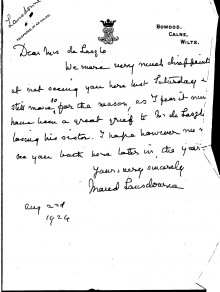 Lansdowne
BOWOOD,
CALNE,
WILTS.
Dear Mrs de Laszlo
We were very much disappointed
at not seeing you here last Saturday &
still more so, for the reason, as I fear it must
have been a great grief to Mr de Laszlo
losing his sister. I hope however we
see you back here later in the year.
Yours very sincerely
Maud Lansdowne
Aug 2nd
1924